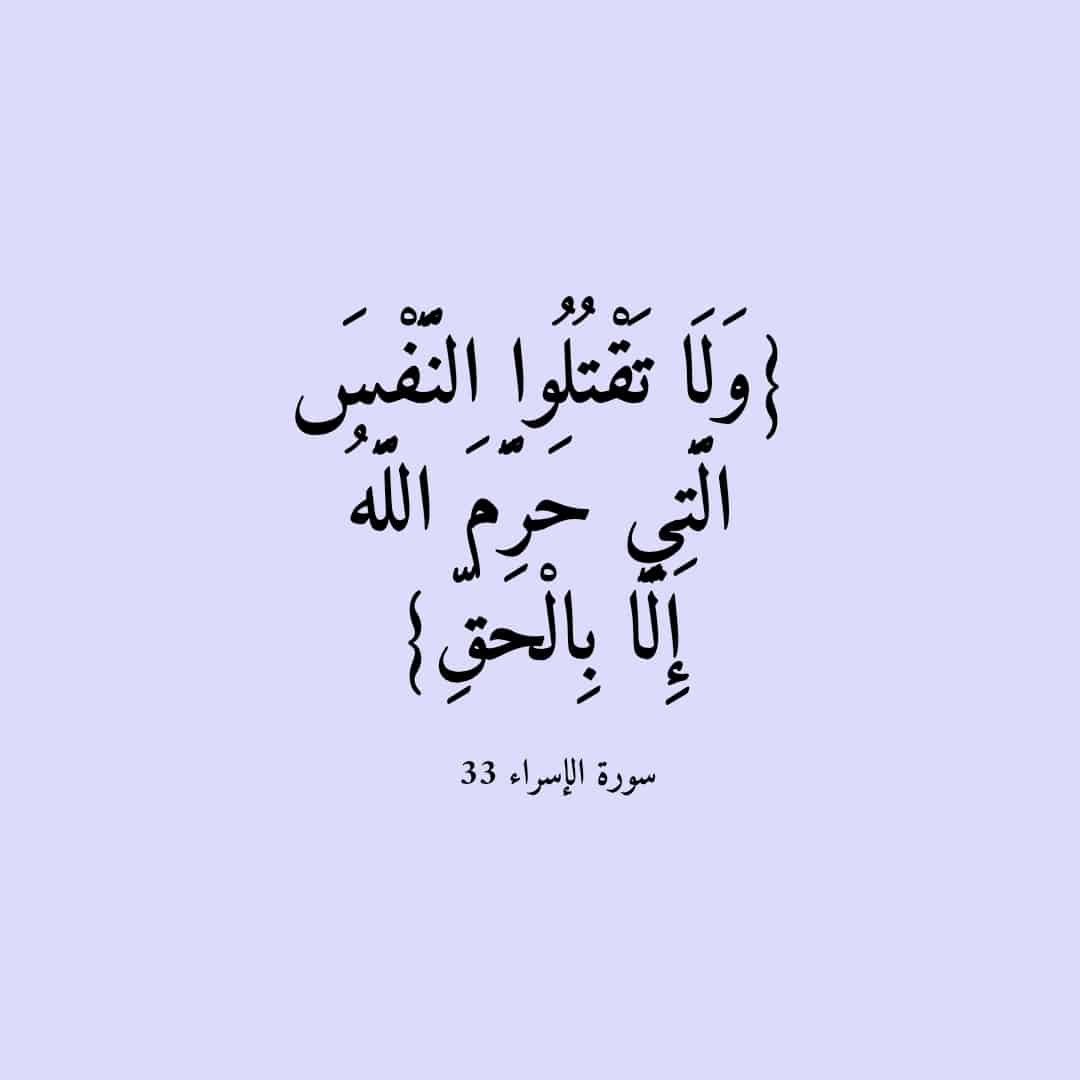 {وَلَا تَقْتُلُوا النَّفْسَ
الَّتِي حَرَّمَ اللَّهُ
إِلَّا بِالْحَقِّ}
سورة الإسراء 33